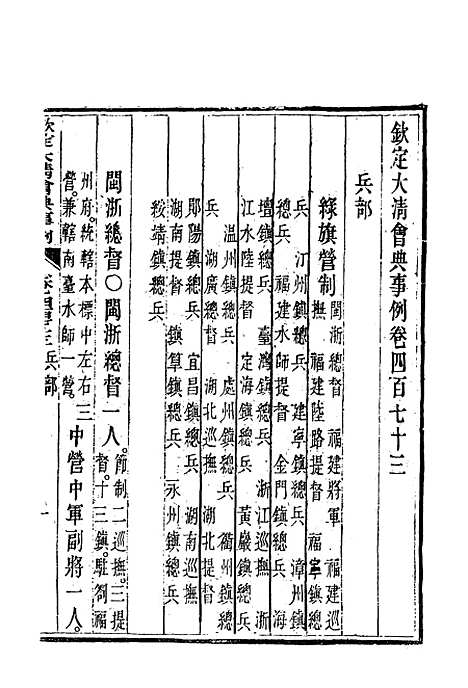 欽定大清會典事例卷四百七十三
兵部
綠旗營制
閩浙總督　福建將軍　福建巡
撫　福建陸路提督　福寧鎮總
兵　福建水師提督　金門鎮總兵　海
汀州鎮總兵　建寧鎮總兵　漳州鎮
壇鎮總兵　臺灣鎮總兵　浙江巡撫　浙
江水陸提督　定海鎮總兵　黃巖鎮總兵
溫州鎮總兵　處州鎮總兵　衢州鎮總
兵　湖廣總督　湖北巡撫　湖北提督
鄖陽鎮總兵　宜昌鎮總兵　湖南巡撫
湖南提督　鎮筸鎮總兵　永州鎮總兵
綏靖鎮總兵
閩浙總督○閩浙總督一人。節制二巡撫。三提
督。十三鎮。駐劄福
州府。統轄本標中左右三
營。兼轄南臺水師一營。中營中軍副將一人。
欽定大清會典事例　兵部
一